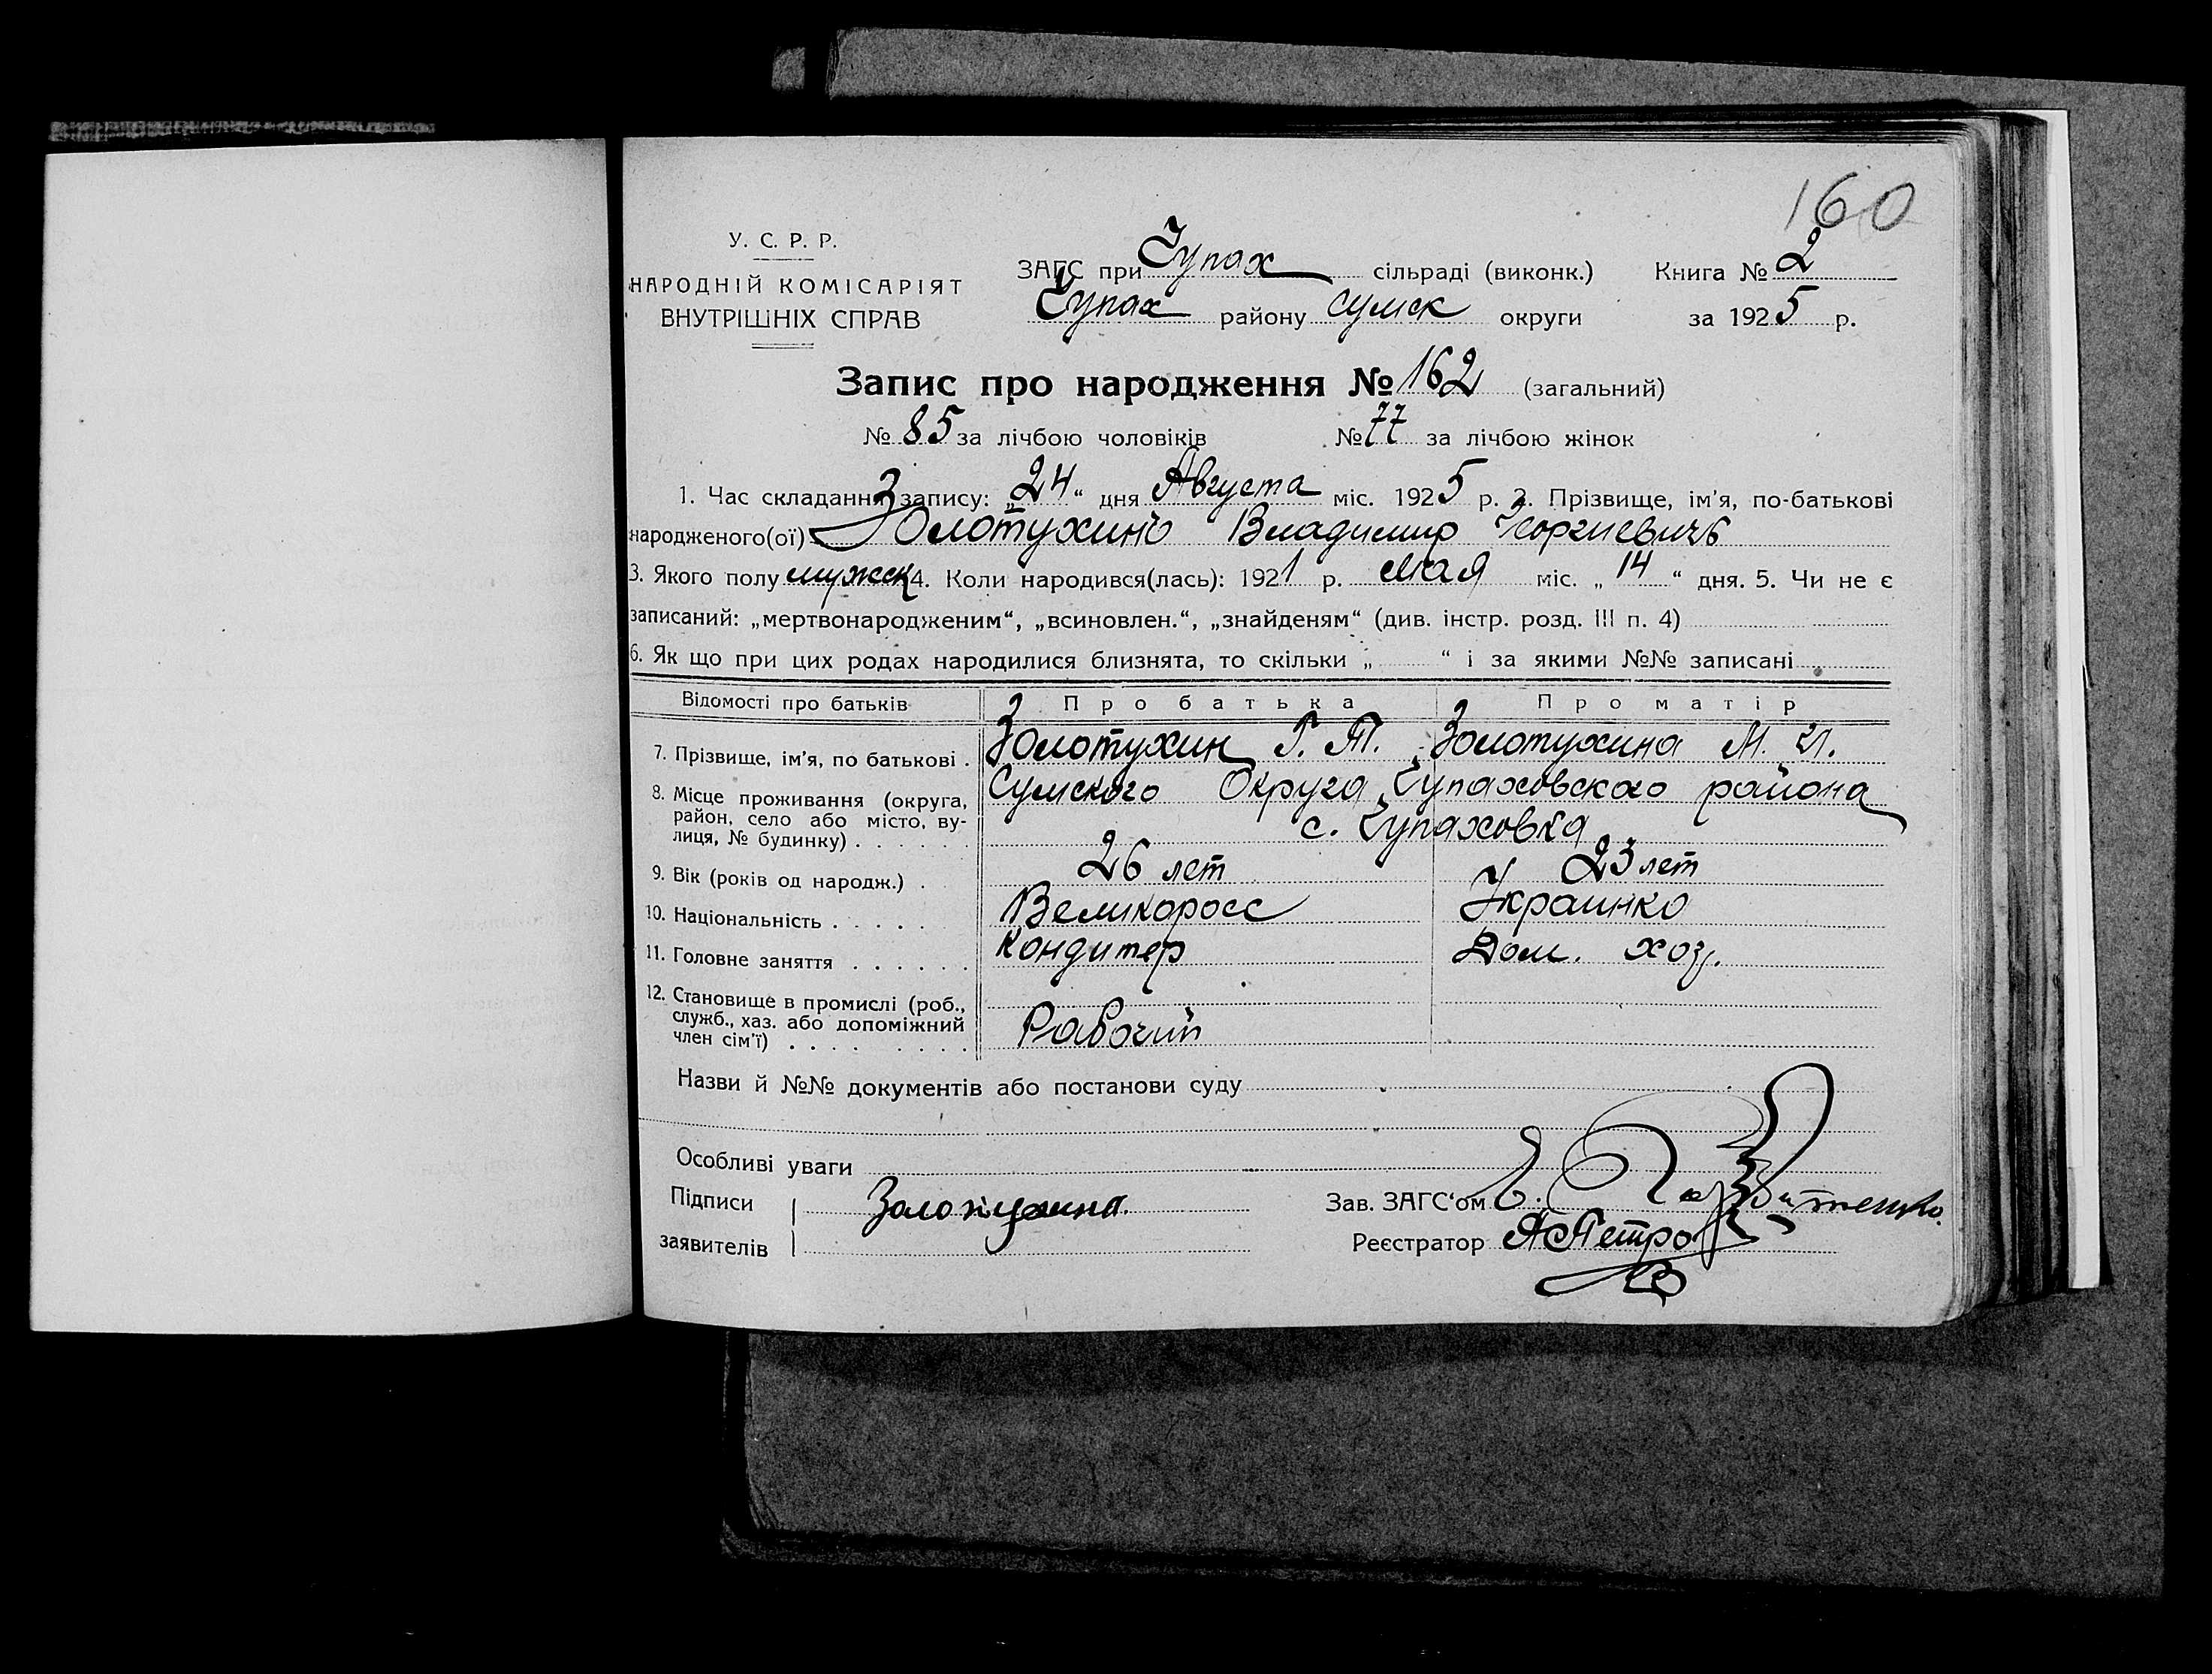 160
У. С. Р. Р.
НАРОДНІЙ КОМІСАРІЯТ
ВНУТРІШНІХ СПРАВ
ЗАГС при Чупах сільраді (виконк.) Книга № 2
Чупах району Сумск округи за 1925 р.
Запис про народження № 162 (загальний)
№ 85 за лічбою чоловіків № 77 за лічбою жінок
1. Час складання запису: „24“ дня Августа міс. 1925 р. 2. Прізвище, ім'я, по-батькові
народженого(ої) Золотухинъ Владимир Георгиевичъ
3. Якого полу мужск 4. Коли народився(лась): 1921 р. мая міс. „14“ дня. 5. Чи не є
записаний: „мертвонародженим“, „всиновлен.“, „знайденям“ (див. інстр. розд. III п. 4)
6. Як що при цих родах народилися близнята, то скільки „ “ і за якими №№ записані
Відомості про батьків Про батька Про матір
7. Прізвище, ім'я, по батькові . Золотухин Г. Т. Золотухина М. И.
8. Місце проживання (округа, Сумского Округа Чупаховскаго района
район, село або місто, ву-
лиця, № будинку) . . . . . . с. Чупаховка
9. Вік (років од народж.) . 26 лет 23 лет
10. Національність . . . . . Великоросс Украинка
11. Головне заняття . . . . . . Кондитер Дом. хоз.
12. Становище в промислі (роб.,
служб., хаз. або допоміжний
член сім'ї) . . . . . . . . Рабочий
Назви й №№ документів або постанови суду
Особливі уваги
Підписи Золотухина.
заявителів
Зав. ЗАГС'ом Е.
Реєстратор АПетро